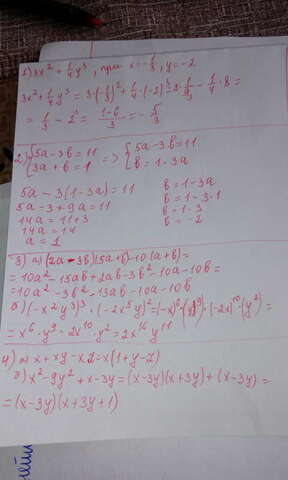 1) 3x² + 1/4 y³, при x=-1/3, y=-2
3x² + 1/4 y³ = 3·(-1/3)² + 1/4·(-2)³ = 3·1/9 - 1/4·8 =
= 1/3 - 2 = (1-6)/3 = -5/3
2) {5a-3b=11 => {5a-3b=11
{3a+b=1 {b=1-3a
5a-3(1-3a)=11 b=1-3a
5a-3+9a=11 b=1-3·1
14a=11+3 b=1-3
14a=14 b=-2
a=1
3) а) (2a-3b)(5a+b)-10(a+b)=
=10a²-15ab+2ab-3b²-10a-10b=
=10a²-3b²-13ab-10a-10b
б) (-x²y³)³·(-2x⁵y)²=(-x)⁶·(y⁹)·(-2x)¹⁰·(y²)=
=x⁶·y⁹·2x¹⁰·y²=2x¹⁶y¹¹
4) а) x+xy-xz=x(1+y-z)
б) x²-9y²+x-3y=(x-3y)(x+3y)+(x-3y)=
=(x-3y)(x+3y+1)